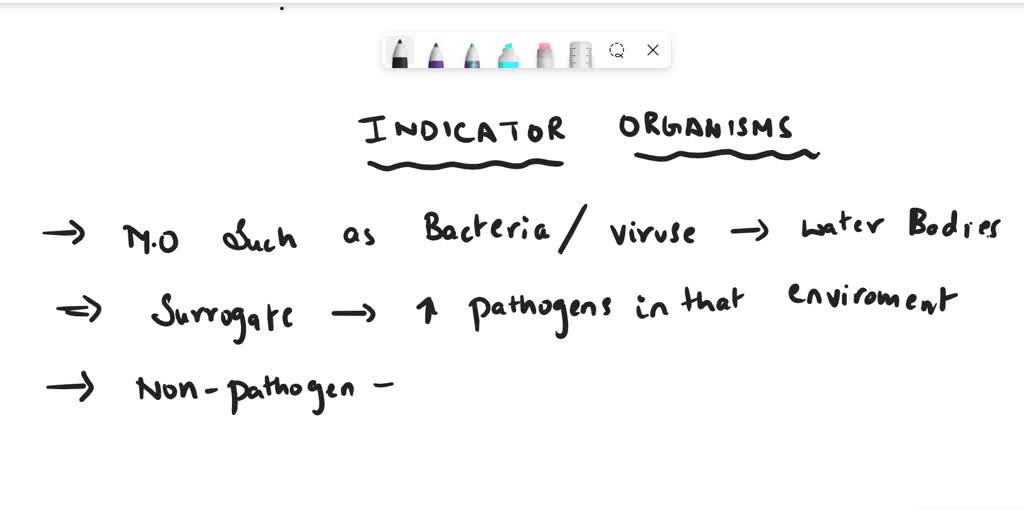 INDICATOR ORGANISMS
→ M.O Such as Bacteria / viruse → water Bodies
⇒ Surrogate → ↑ pathogens in that enviroment
→ Non-pathogen -